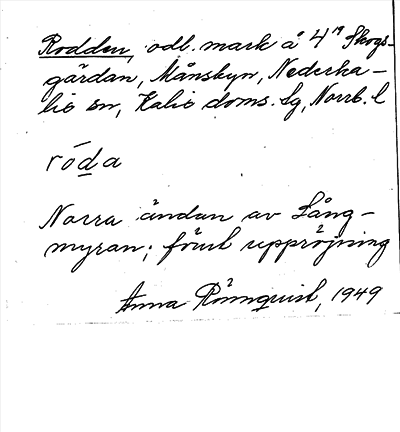 Rodden, odl. mark å 4:19 Skogs-
gärdan, Månsbyn, Nederka-
lix sn, Kalix doms. sg, Norrb. l
róda
Norra ändan av Lång-
myran; förut uppröjning
Anna Rönnquist, 1949